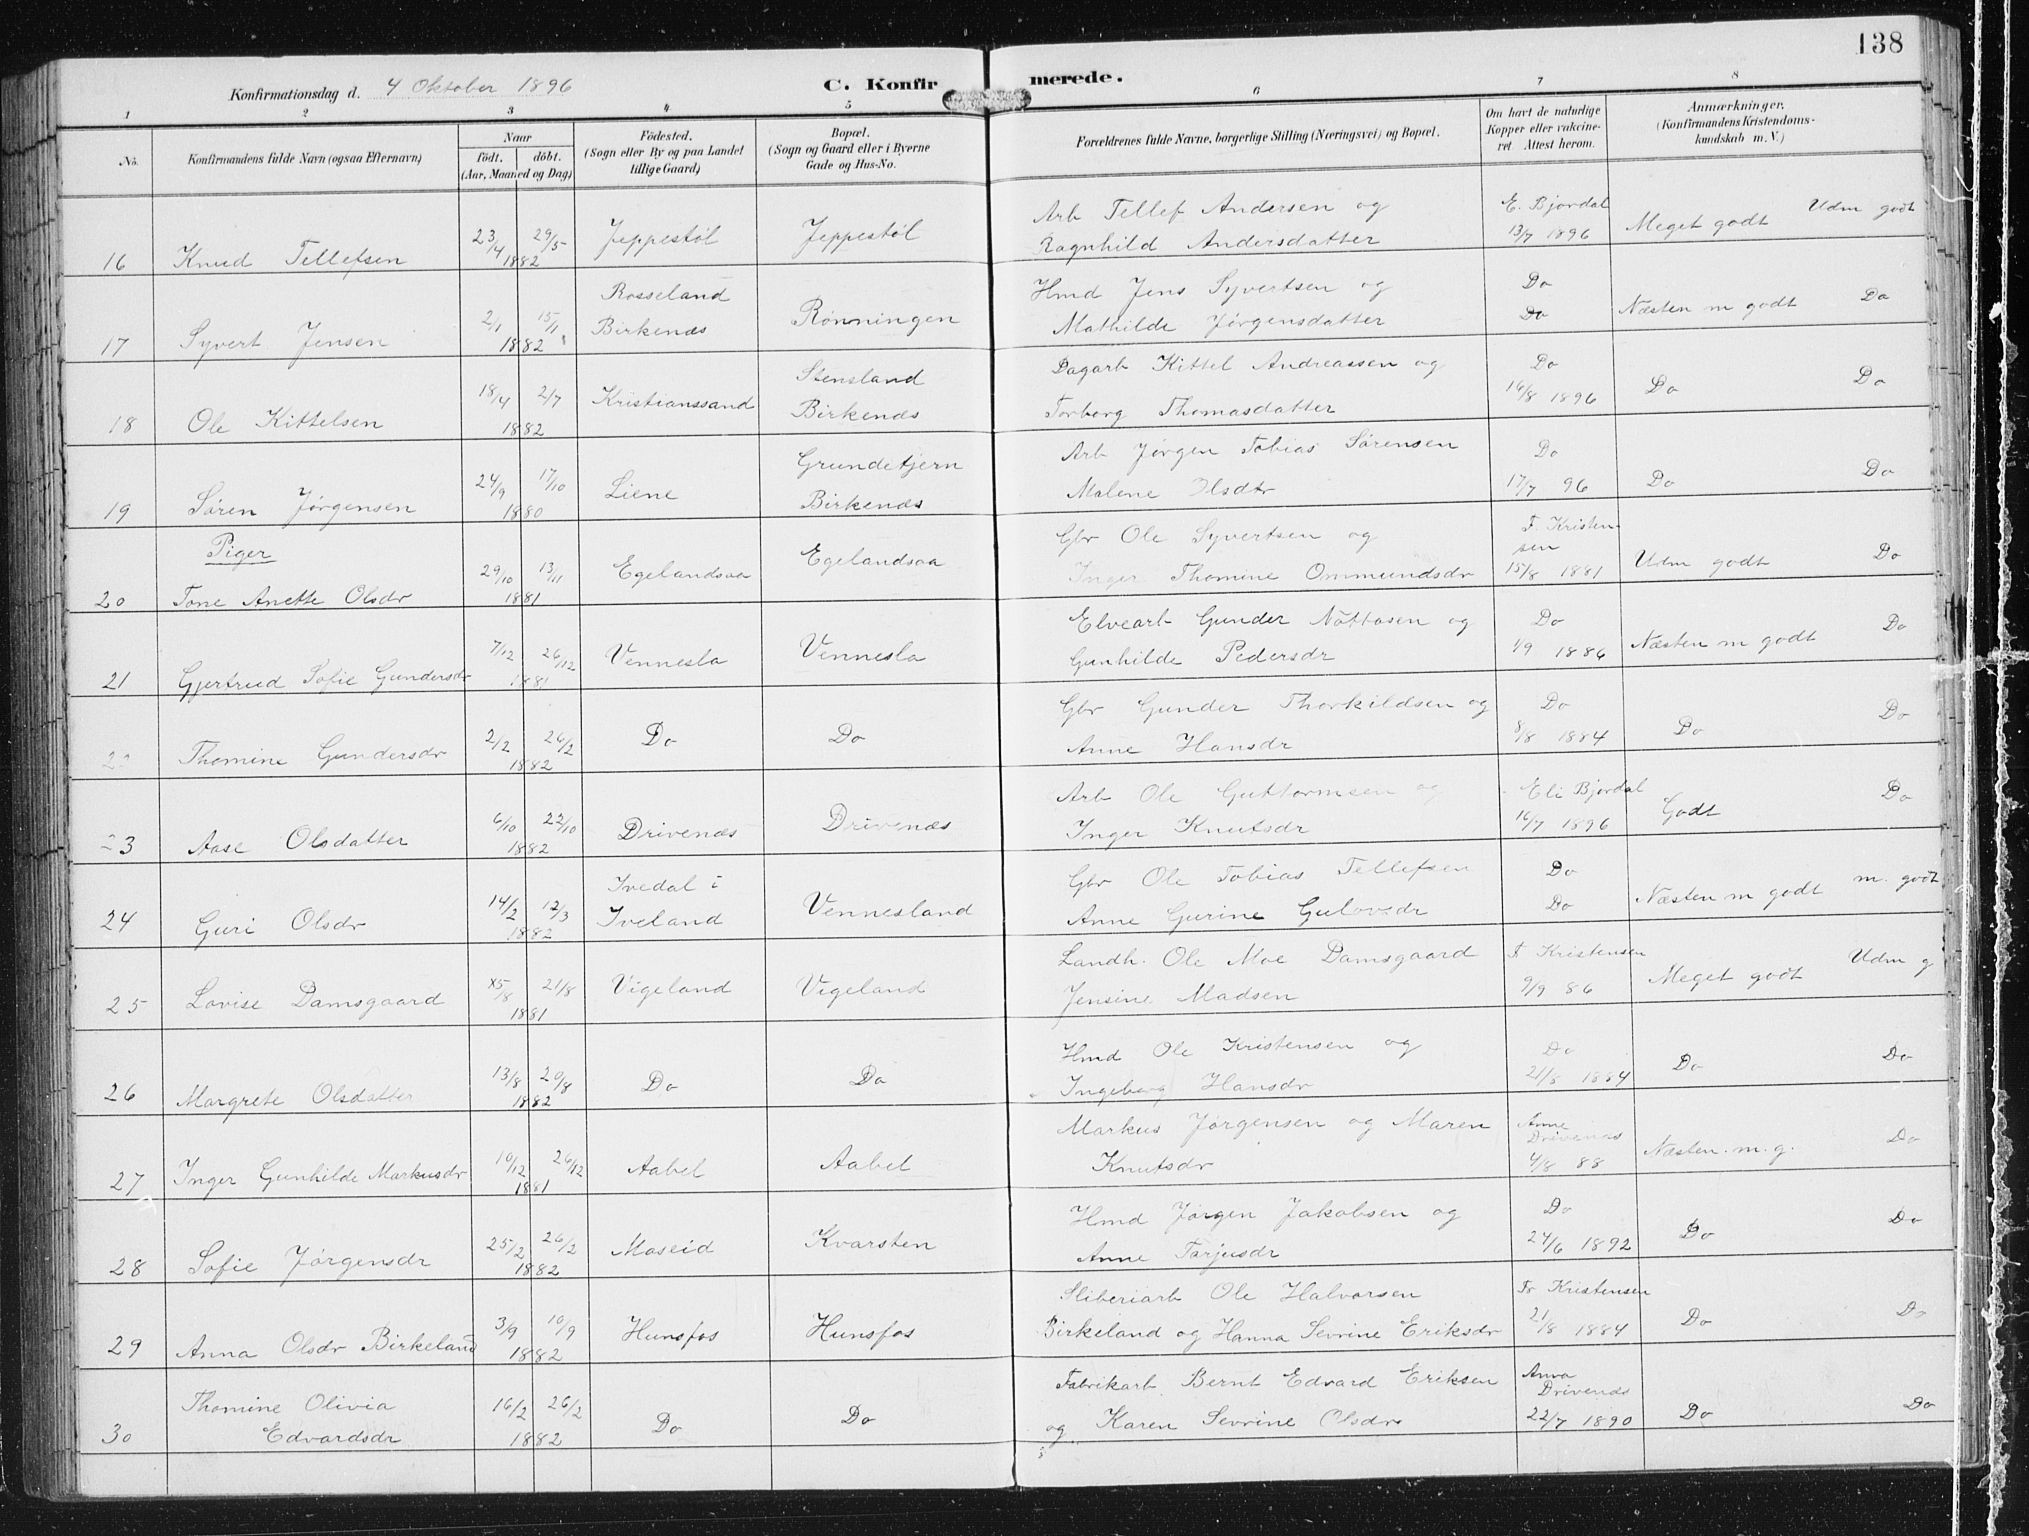 138
Konfirmationsdag d. 4 Oktober 1896
C. Konfirmerede.
1 2 3 4 5 6 7 8
No.
Konfirmandens fulde Navn (ogsaa Efternavn)
Naar
födt. döbt.
(Aar, Maaned og Dag)
Födested.
(Sogn eller By og paa Landet
tillige Gaard)
Bopæl.
(Sogn og Gaard eller i Byerne
Gade og Hus-No.
Forældrenes fulde Navne, borgerlige Stilling (Næringsvei) og Bopæl.
Om havt de naturlige
Kopper eller vakcine-
ret. Attest herom.
Anmærkninger.
(Konfirmandens Kristendoms-
kundskab m. V.)
16 Knud Tellefsen 23/4 29/5 1882 Jeppestøl Jeppestøl
Arb Tellef Andersen og
Ragnhild Andersdatter
E. Bjordal
13/7 1896
Meget godt Udm godt
17 Syvert Jensen 2/1 15/1 1882
Rosseland
Birkenæs
Rønningen
Hmd Jens Syvertsen og
Mathilde Jørgensdatter
Do
Do
Næsten m godt Do
18 Ole Kittelsen 18/4 2/7 1882 Kristianssand
Stensland
Birkenæs
Dagarb Kittel Andreassen og
Torborg Thomasdatter
Do
16/8 1896
Do Do
19 Søren Jørgensen 24/9 17/10 1880 Liene
Grundetjern
Birkenæs
Arb Jørgen Tobias Sørensen
Malene Olsdtr
Do
17/7 96
Do Do
Piger
20 Tone Anette Olsdr 29/10 13/11 1881 Egelandsaa Egelandsaa
Gbr Ole Syvertsen og
Inger Thomine Ommundsdr
T. Kristen-
sen
15/8 1881
Udm godt Do
21 Gjertrud Sofie Gundersdr 7/12 26/12 1881 Vennesla Vennesla
Elvearb Gunder Nottosen og
Gunhilde Pedersdr
Do
1/9 1886
Næsten m godt Do
22 Thomine Gundersdr 2/2 26/2 1882 Do Do
Gbr Gunder Thorkildsen og
Anne Hansdr
Do
8/8 1884
Do Do
23 Aase Olsdatter 6/10 22/10 1882 Drivenæs Drivenæs
Arb Ole Guttormsen og
Inger Knutsdr
Eli Bjordal
16/7 1896
Godt Do
24 Guri Olsdr 14/2 12/3 1882
Ivedal i
Iveland
Vennesland
Gbr Ole Tobias Tellefsen
Anne Gurine Gulovsdr
Do
Do
Næsten m godt m. godt
25 Lovise Damsgaard 15/8 21/8 1881 Vigeland Vigeland
Landh. Ole Moe Damsgaard
Jensine Madsen
T Kristensen
9/9 86
Meget godt Udm g
26 Margrete Olsdatter 13/8 20/8 1882 Do Do
Hmd Ole Kristensen og
Ingeborg Hansdr
Do
21/8 1884
Do Do
27 Inger Gunhilde Markusdr 10/12 26/12 1881 Aabel Aabel
Markus Jørgensen og Maren
Knutsdr
Anne
Drivenæs
4/8 88
Næsten. m. g. Do
28 Sofie Jørgensdr 25/2 26/2 1882 Moseid Kvarsten
Hmd Jørgen Jakobsen og
Anne Tarjusdr
Do
24/6 1892
Do Do
29 Anna Olsdr Birkeland 3/9 10/9 1882 Hunsfos Hunsfos
Sliberiarb Ole Halvorsen
Birkeland og Hanna Sevrine Eriksdr
Tr Kristensen
21/8 1884
Do Do
30 Thomine Olivia
Edvardsdr
16/2 26/2 1882 Do Do
Fabrikarb. Bernt Edvard Eriksen
og Karen Sevrine Olsdr
Anna
Drivenes
22/7 1890
Do Do